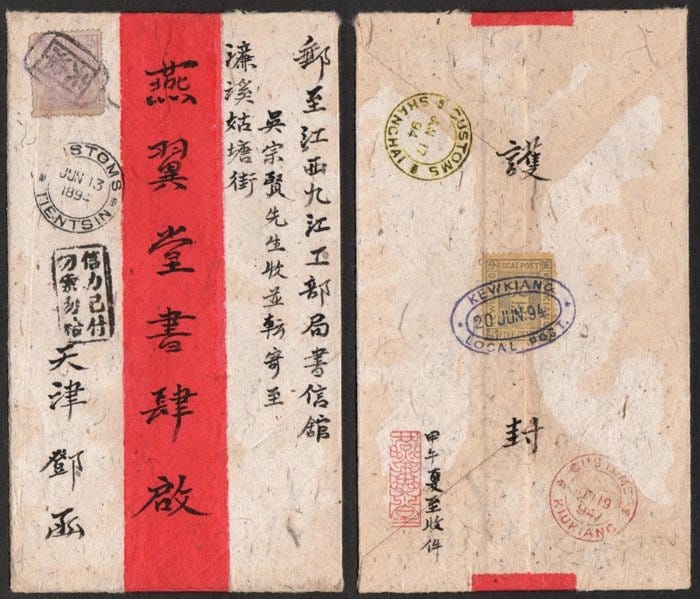 郵至江西九江工部局書信館
吳宗賢先生收並轉寄至
濂溪姑塘街
燕翼堂書肆啟
CUSTOMS
JUN 13
189
TIENTSIN
信力已付
天津鄧函
CUSTOMS
JUN 17
94
SHANGHAI
護
封
LOCAL POST
KEWKIANG
20 JUN. 94
LOCAL POST.
甲午夏至收件
CUSTOMS
JUN 19
94
KIUKIANG